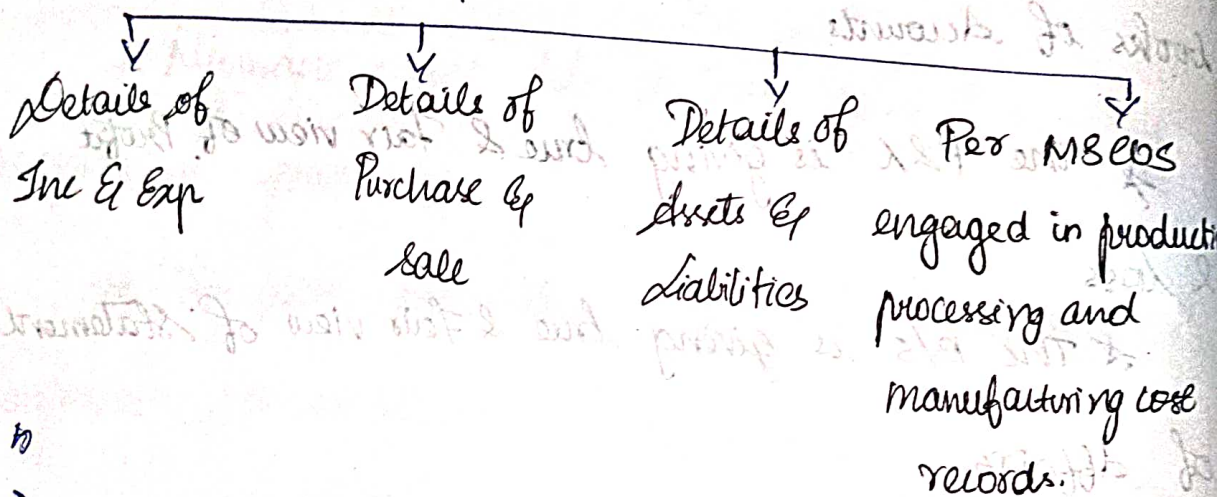 Details of
Inc & Exp
Details of
Purchase &
sale
Details of
Assets &
Liabilities
Per
engaged in producti
processing and
manufacturing cost
records.